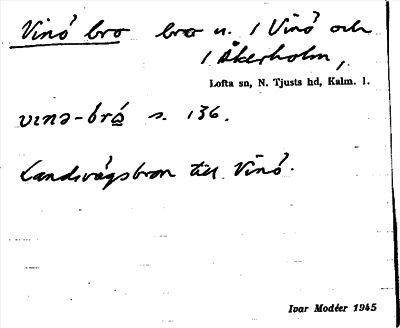 Vinö bro bro n. / Vinö och
/ Åkerholm,
Lofta sn, N. Tjusts hd, Kalm. l.
vınə-bró s. 136.
Landsvägsbron till Vinö.
Ivar Modéer 1945